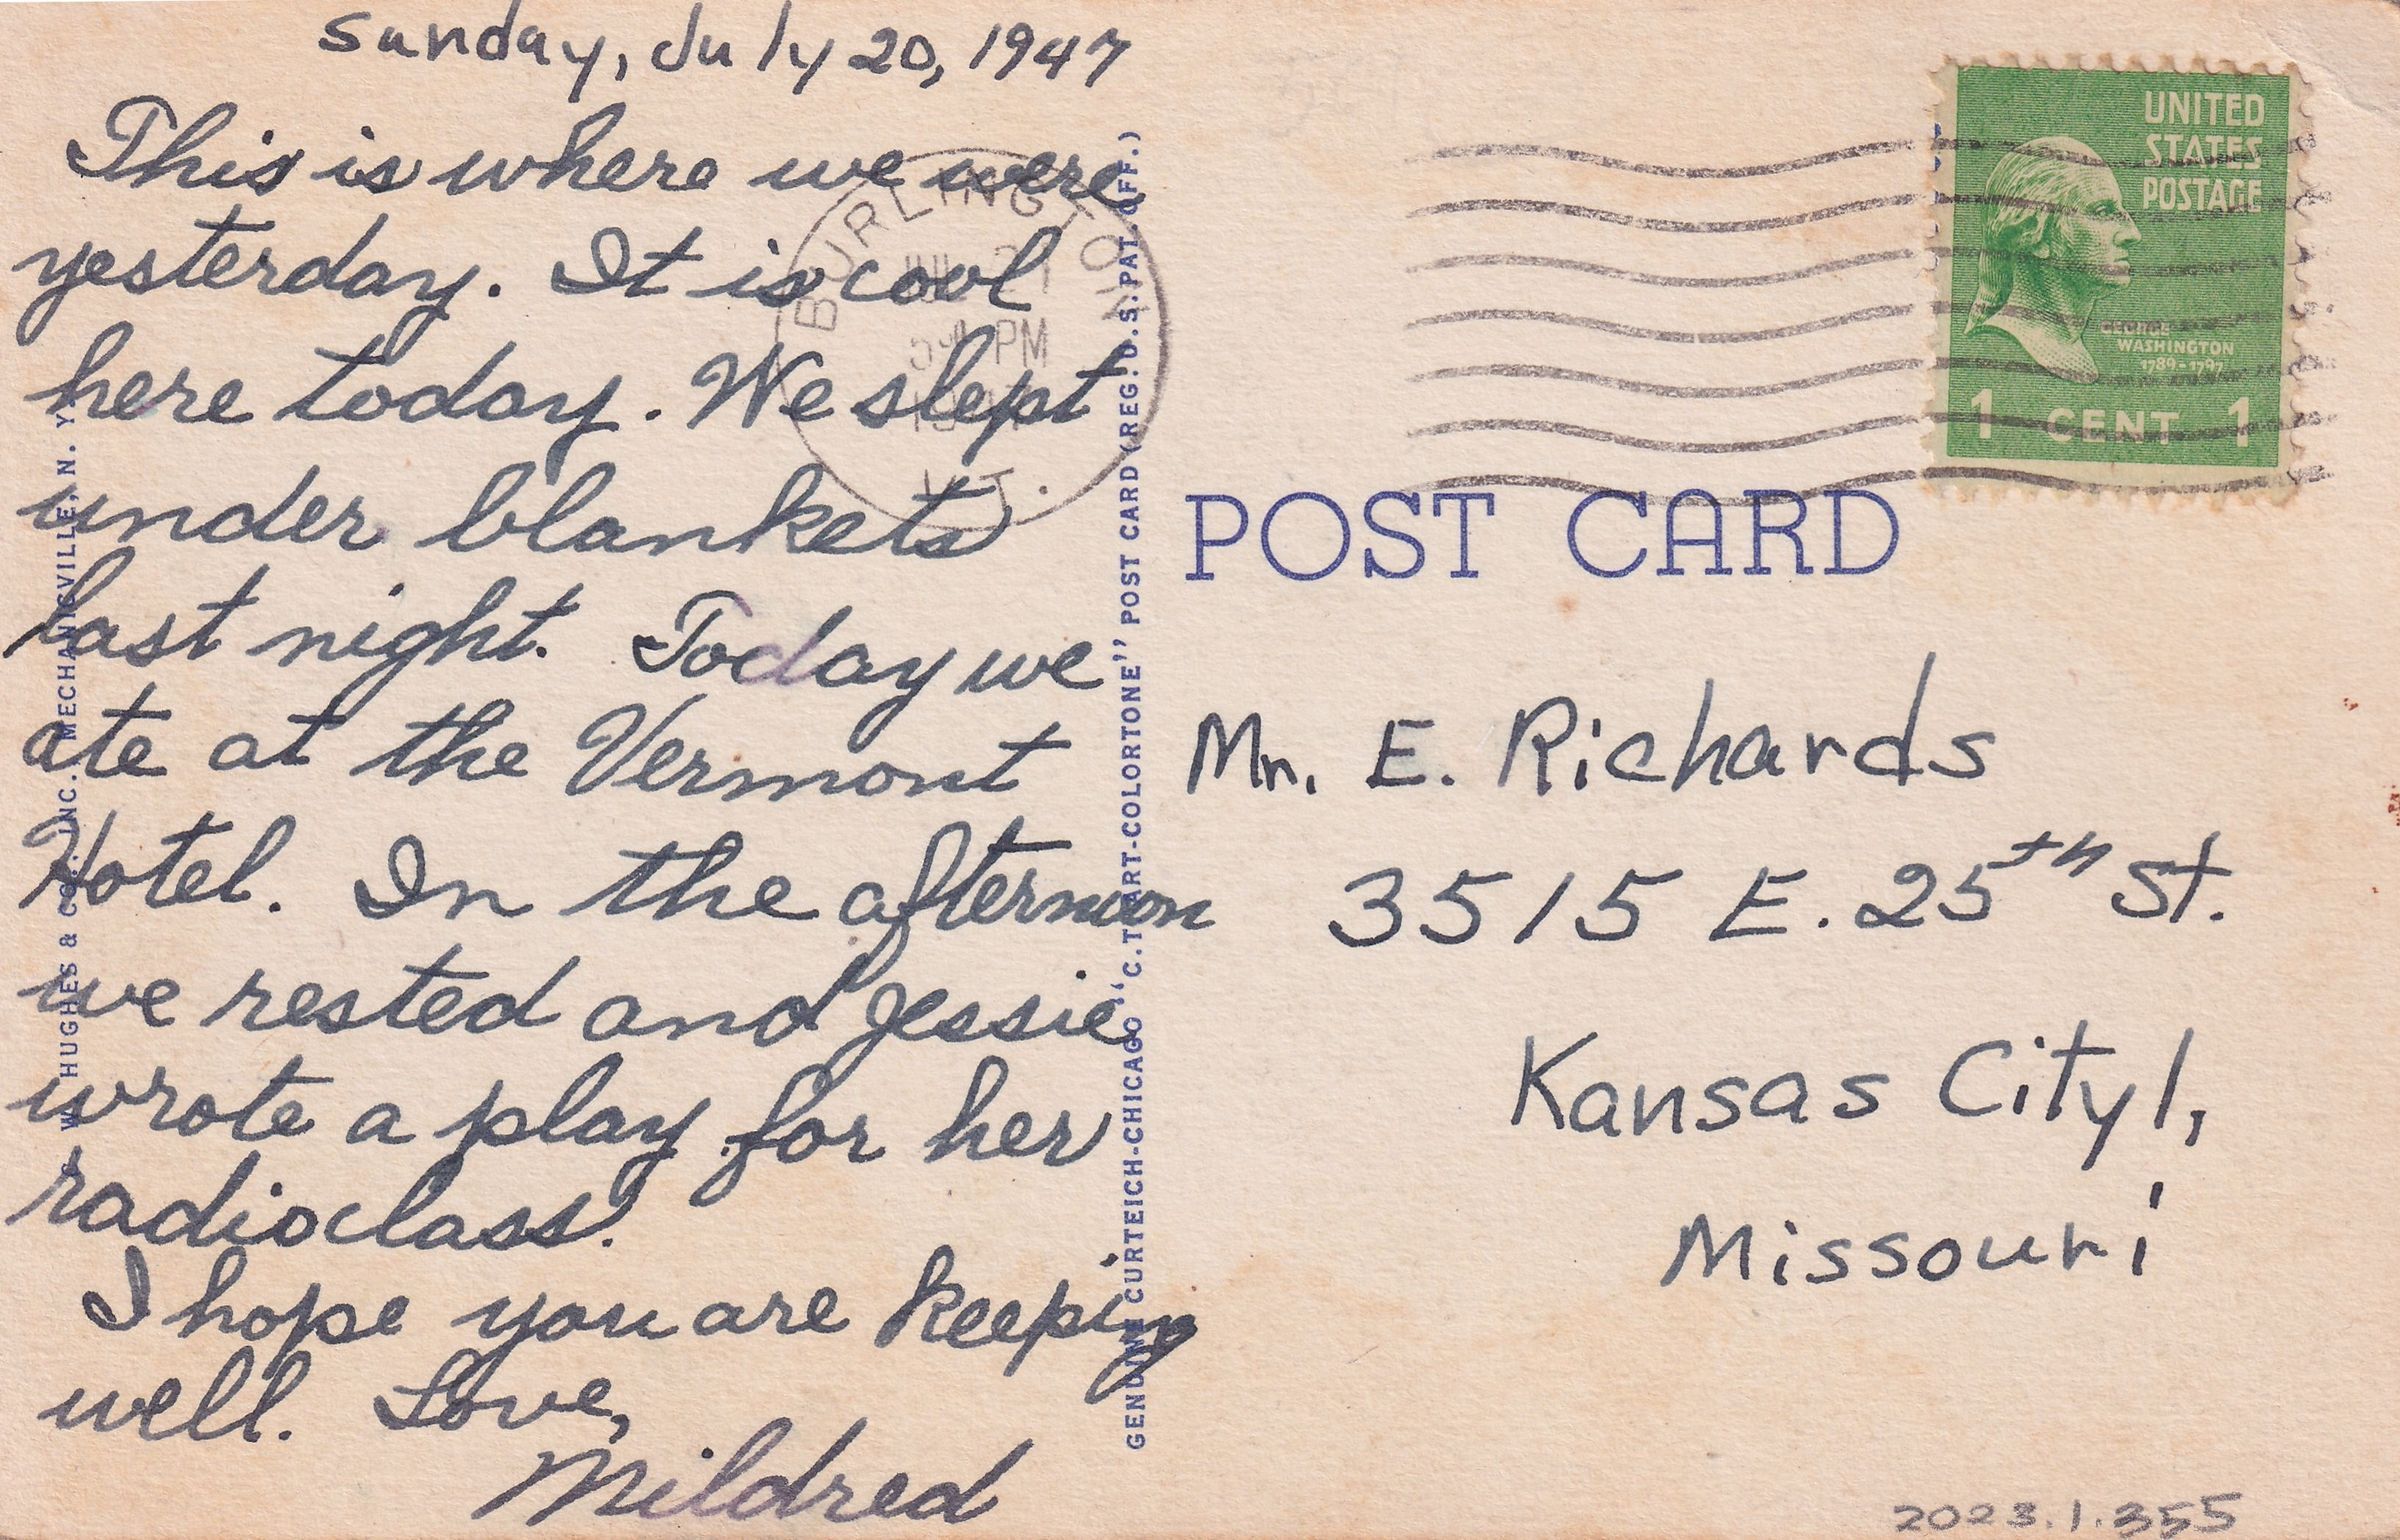 Sunday, July 20, 1947
This is where we were
yesterday. It is cool
here today. We slept
under blankets
last night. Today we
ate at the Vermont
Hotel. In the afternoon
we rested and Jessie
wrote a play for her
radio class.
I hope you are keeping
well. Love,
Mildred
BURLINGTON
JUL 21
PM
VT.
HUGHES & CO., INC., MECHANICVILLE, N. Y.
GENUINE CURTEICH-CHICAGO "C.T. ART-COLORTONE" POST CARD (REG. U.S. PAT. OFF.)
UNITED
STATES
POSTAGE
GEORGE
WASHINGTON
1789-1797
1 CENT 1
POST CARD
Mr. E. Richards
3515 E. 25th St.
Kansas City 1,
Missouri
2023.1.355